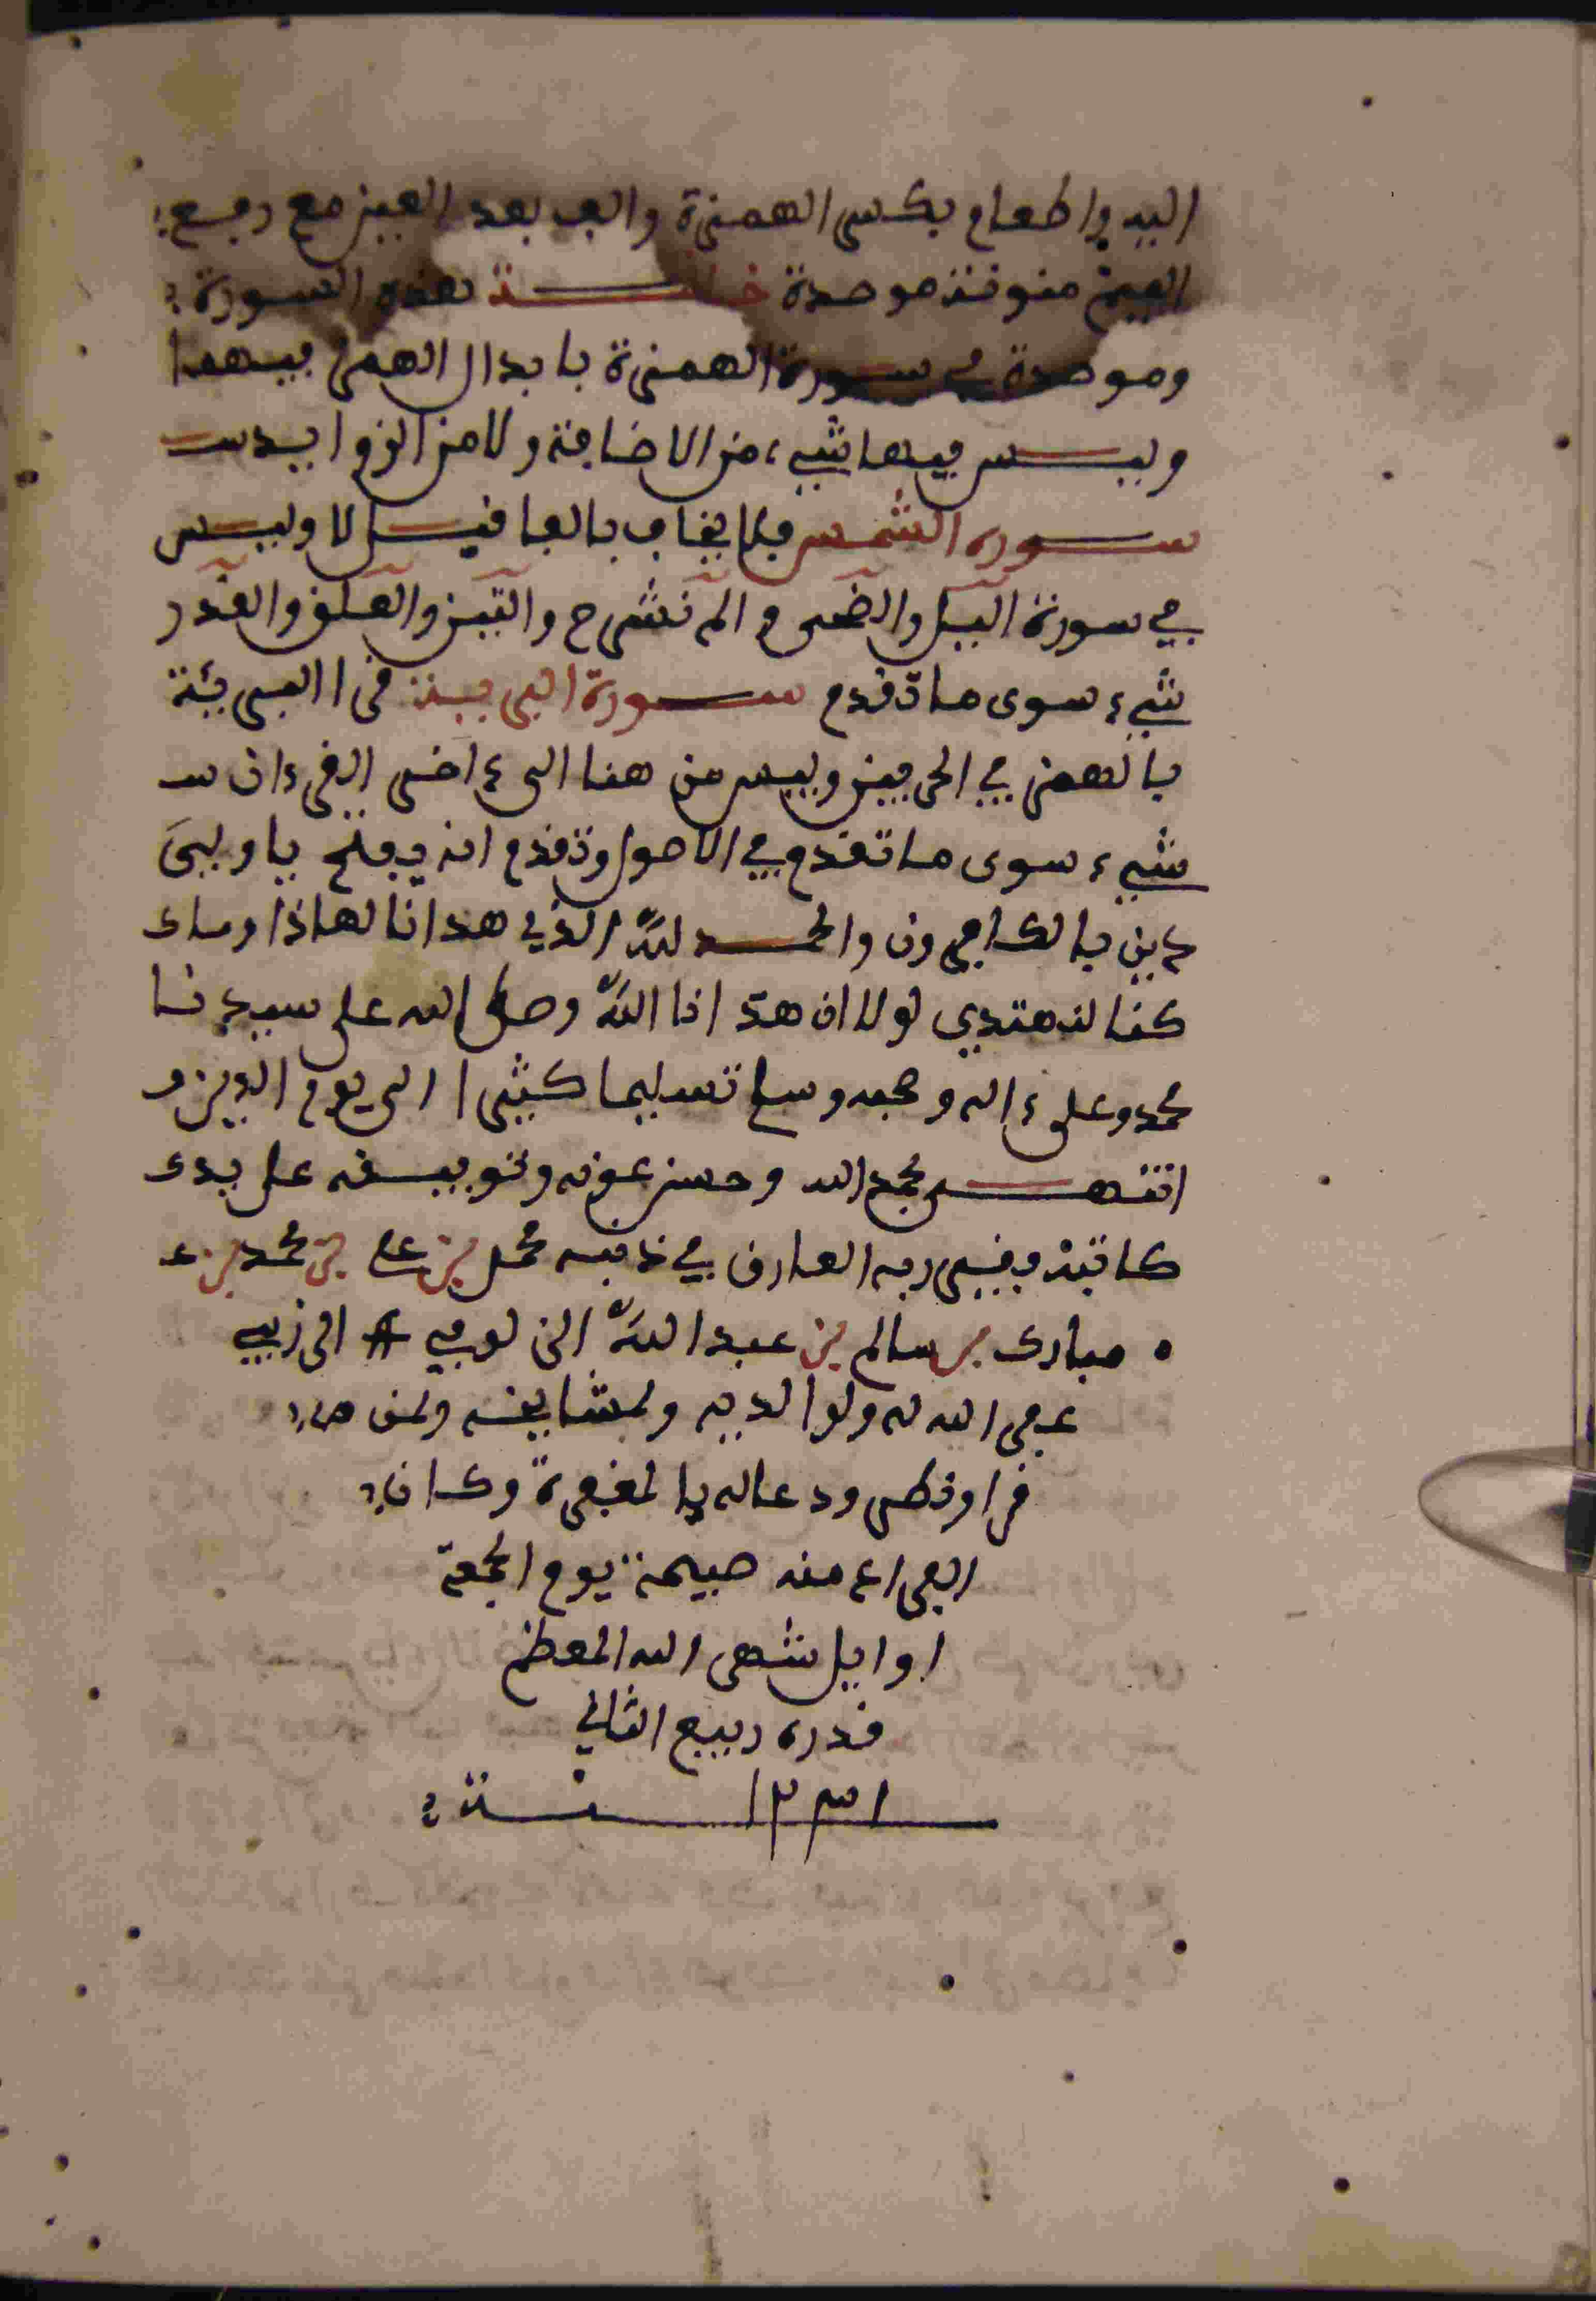 اليد واطعام بكسر الهمزة والف بعد العين مع رفع
الميم منونة موصدة خاتمـــة هذه السورة
وموصدة في سورة الهمزة بابدال الهمز فيهما
وليـــس فيها شيء من الاضافة ولا من الزوايد ســ
ســورة الشمس فلا يخاف بالفا فيـــل لا وليــس
في سورة اليل والضحى والم نشرح والتين والعلق والقدر
شيء سوى ما تقدم ســـورة البريـة قرا البريئة
بالهمز في الحرفين وليس من هنا الى ءاخر القرءان ســ
شيء سوى ما تقدم في الاصول وتقدم انه يفتح ياء ولي
دين بالكافرون والحمـــد لله الذي هدانا لهاذا وما
كنا لنهتدي لولا ان هدانا الله وصلى الله على سيدنا
محمد وعلى ءاله وصحبه وسلم تسليما كثيرا الى يوم الدين و
انتهـــى بحمد الله وحسن عونه وتوفيـــقه على يد
كاتبه فقير ربه العارف في ذنبه محمد بن علي بن محمد بن
مبارك بن سالم بن عبد الله
غفر الله له ولوالديه ولمشايخه ولمن
قرا ونظر ودعا له بالمغفرة وكان
الفراغ منه صبيحة يوم الجمعة
اوايل شهر الله المعظم
قدره ربيع الثاني
١٢٣١ ســـنة